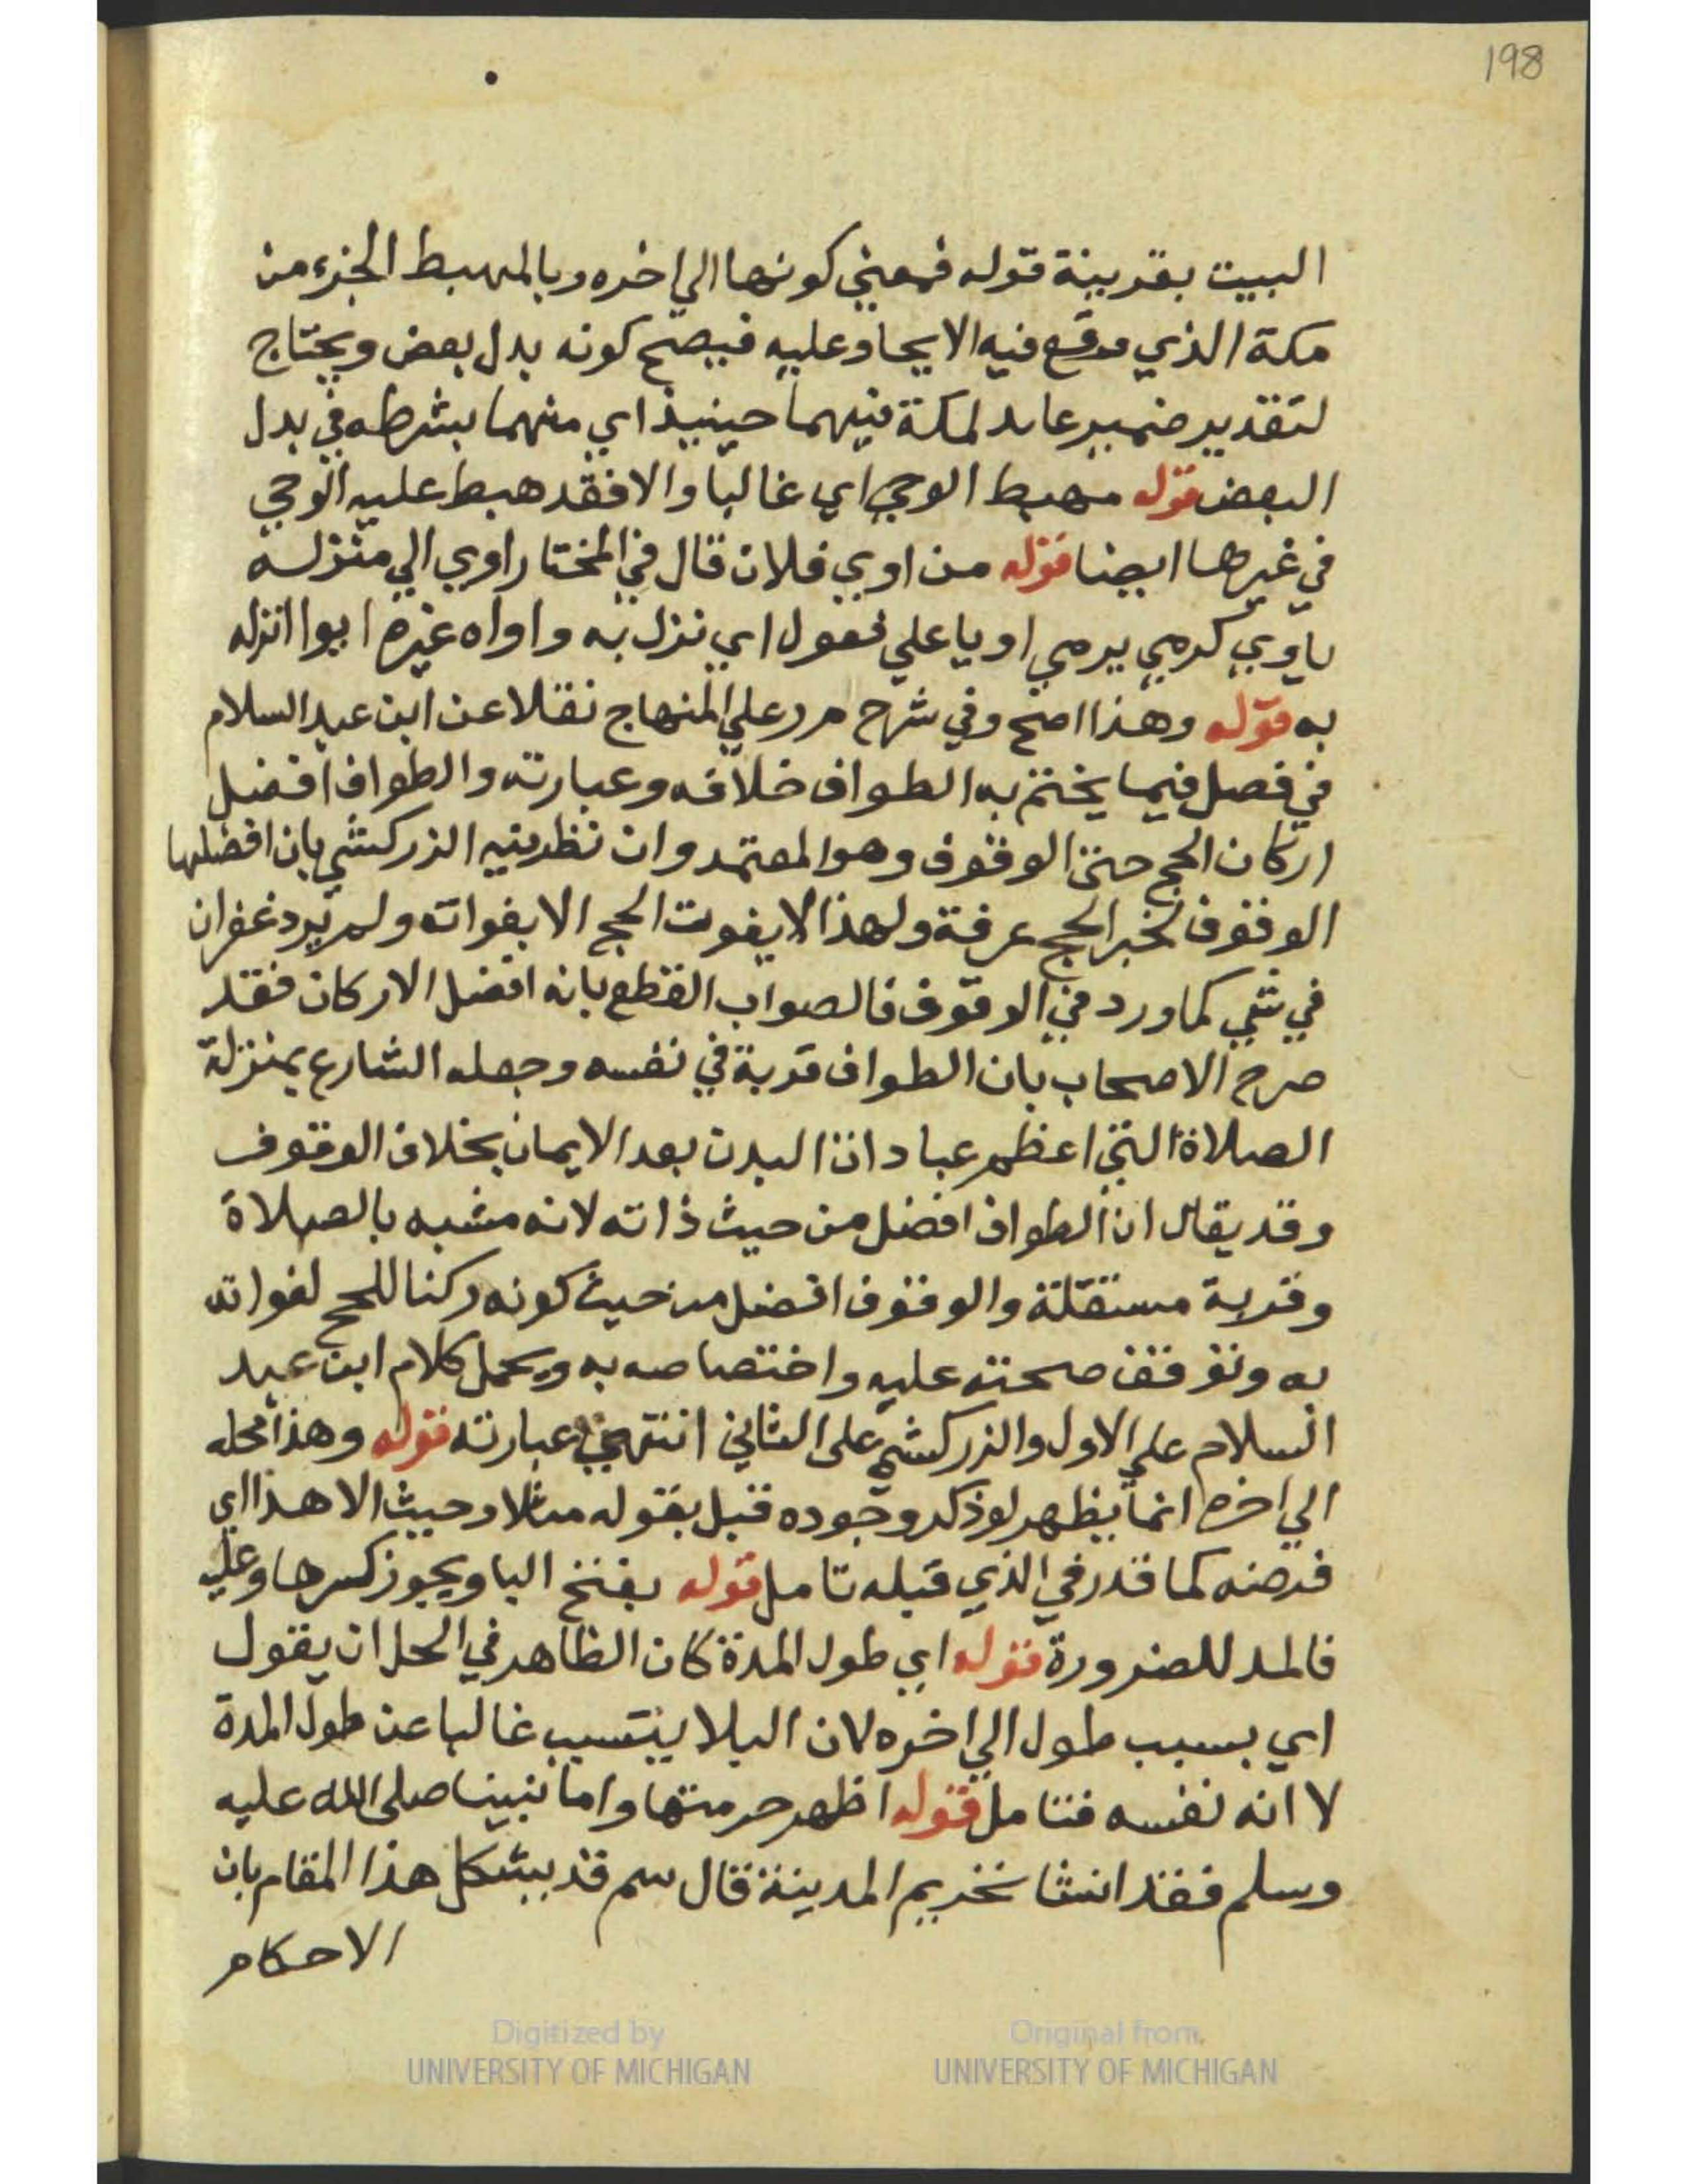 198
البيت بقرينة قوله فمعني كونها الي اخره وبالمهبط الجزء من
مكة الذي موقع فيه الايحاء وعليه فيصح كونه بدل بعض ويحتاج
لتقدير ضمير عايد لمكة فيهما حينيذ اي منهما بشرطه في بدل
البعض قوله مهبط الوحي اي غالبا والا فقد هبط عليه الوحي
في غيرها ايضا قوله من اوي فلان قال في المختار اوي الي منزله
ياوي كرمي يرمي اويا علي فعول اي نزل به واواه غيره ايوا انزله
به قوله وهذا اصح وفي شرح م ر علي المنهاج نقلا عن ابن عبد السلام
في فصل فيما يختم به الطواف خلافه وعبارته والطواف افضل
اركان الحج حتي الوقوف وهو المعتمد وان نظر فيه الزركشي بان افضلها
الوقوف لخبر الحج عرفة ولهذا لا يفوت الحج الا بفواته ولم يرد غفران
في شي كما ورد في الوقوف فالصواب القطع بانه افضل الاركان فقد
صرح الاصحاب بان الطواف قربة في نفسه وجعله الشارع بمنزلة
الصلاة التي اعظم عبادات البدن بعد الايمان بخلاف الوقوف
وقد يقال ان الطواف افضل من حيث ذاته لانه مشبه بالصلاة
وقربة مستقلة والوقوف افضل من حيث كونه ركنا للحج لفواته
به وتوقف صحته عليه واختصاصه به ويحمل كلام ابن عبد
السلام علي الاول والزركشي علي الثاني انتهي عبارته قوله وهذا محله
الي اخره انما يظهر لو ذكر وجوده قبل بقوله مثلا وحيث الا هذا اي
فرضه كما قدر في الذي قبله تامل قوله بفتح البا ويجوز كسرها وعليه
فالمد للضرورة قوله اي طول المدة كان الظاهر في الحل ان يقول
اي بسبب طول الي اخره لان البلا يتسبب غالبا عن طول المدة
لا انه نفسه فتامل قوله اظهر حرمتها واما نبينا صلي الله عليه
وسلم فقد انشا تحريم المدينة قال سم قد يشكل هذا المقام بان
الاحكام
Digitized by
UNIVERSITY OF MICHIGAN
Original from
UNIVERSITY OF MICHIGAN